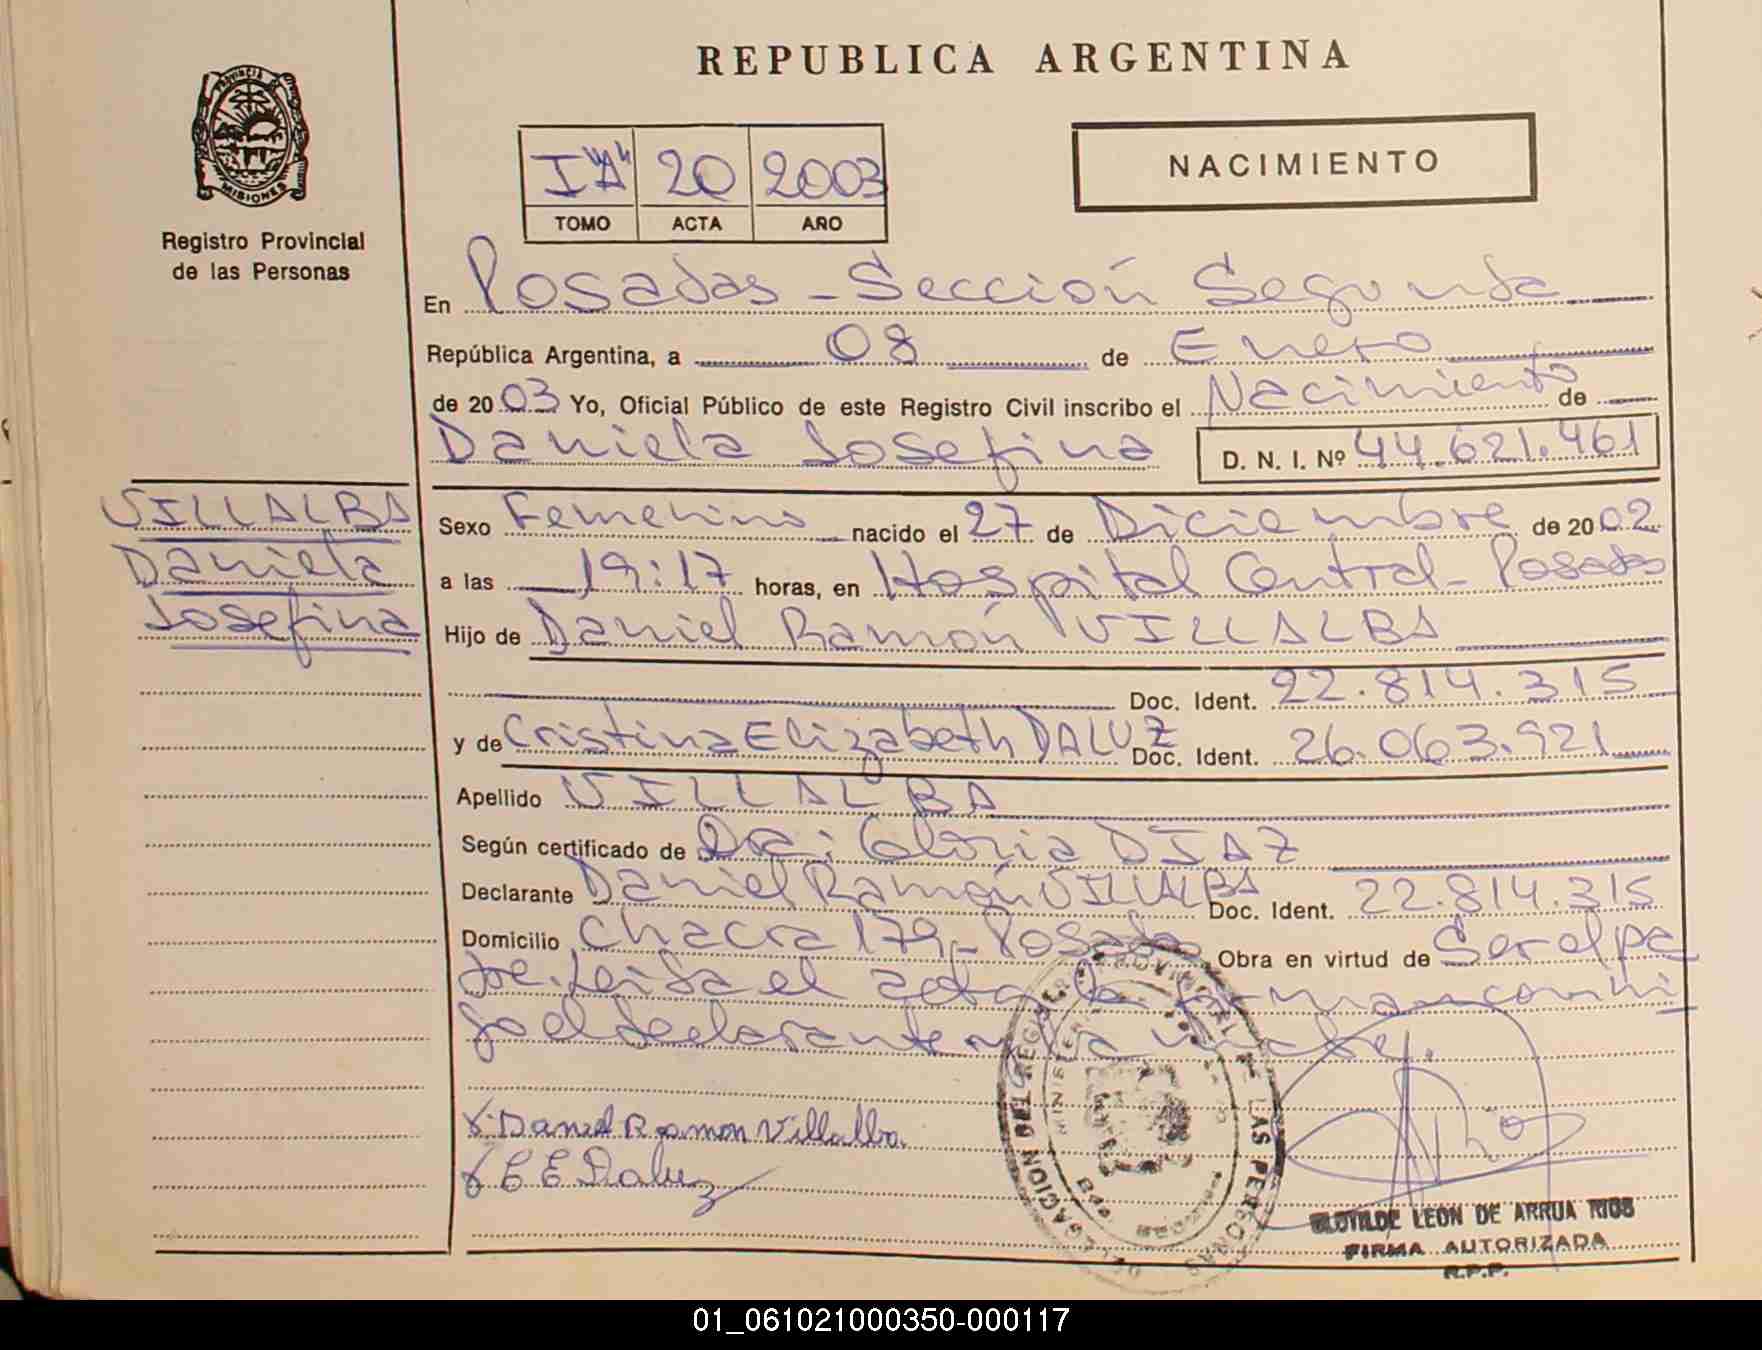 REPUBLICA ARGENTINA
PROVINCIA DE
MISIONES
Registro Provincial
de las Personas
I "A" 20 2003
TOMO ACTA AÑO
NACIMIENTO
En Posadas - Sección Segunda
República Argentina, a 08 de Enero
de 2003 Yo, Oficial Público de este Registro Civil inscribo el Nacimiento de
Daniela Josefina D. N. I. Nº 44.621.461
VILLALBA
Daniela
Josefina
Sexo Femenino nacido el 27 de Diciembre de 2002
a las 19:17 horas, en Hospital Central - Posadas
Hijo de Daniel Ramón VILLALBA
Doc. Ident. 22.814.315
y de Cristina Elizabeth DALUZ Doc. Ident. 26.063.921
Apellido VILLALBA
Según certificado de Dra: Gloria DIAZ
Declarante Daniel Ramón VILLALBA Doc. Ident. 22.814.315
Domicilio Chacra 179 - Posadas Obra en virtud de Ser el pa
dre. Leída el acta la firman conmi
go el declarante y la madre.
X. Daniel Ramon Villalba
X C E Daluz
DELEGACION DTO REGISTRO LAS PERSONAS
MINISTERIO
CLOTILDE LEON DE ARRUA RIOS
FIRMA AUTORIZADA
R.P.P.
01_061021000350-000117